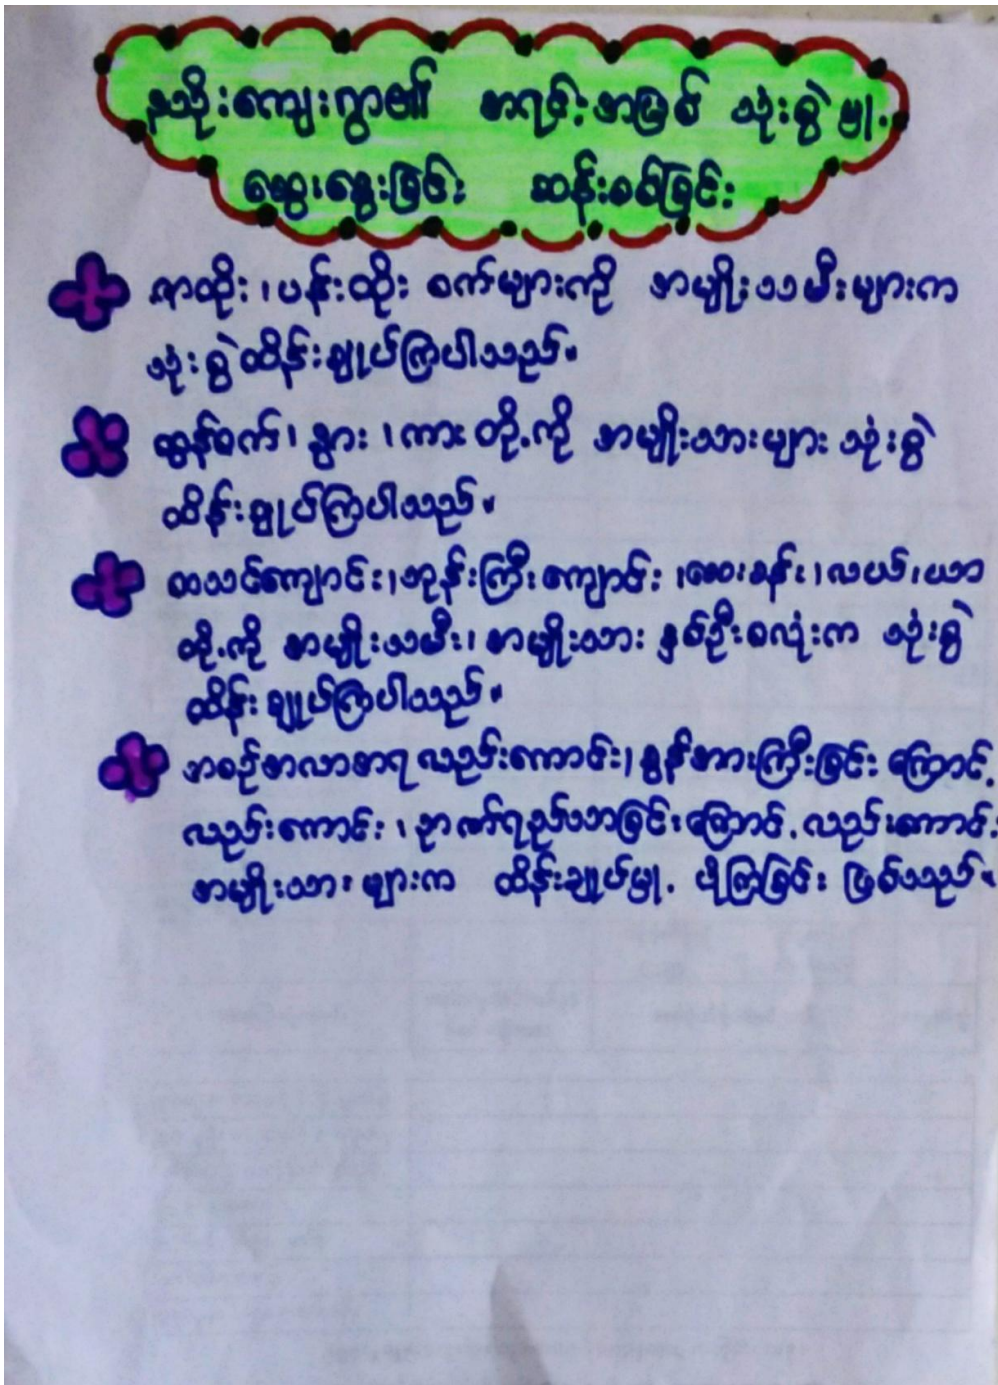 နသိုးကျေးရွာ၏ အရင်းအမြစ် သုံးစွဲမှု့
ဆွေးနွေးခြင်း ဆန်းစစ်ခြင်း
ဇာထိုး၊ ပန်းထိုး စက်များကို အမျိုးသမီးများက
သုံးစွဲထိန်းချုပ်ကြပါသည်။
ထွန်စက်၊ နွား ၊ကား တို့ကို အမျိုးသားများ သုံးစွဲ
ထိန်းချုပ်ကြပါသည်။
စာသင်ကျောင်း၊ဘုန်းကြီးကျောင်း ၊ဆေးခန်း၊လယ်၊ယာ
တို့ကို အမျိုးသမီး၊ အမျိုးသား နှစ်ဦးစလုံးက သုံးစွဲ
ထိန်းချုပ်ကြပါသည်။
အစဉ်အလာအရ လည်းကောင်း၊ ခွန်အားကြီးခြင်း ကြောင့်
လည်းကောင်း ၊ ဉာဏ်ရည်သာခြင်းကြောင့် လည်းကောင်း
အမျိုးသားများက ထိန်းချုပ်မှု့ ပိုကြခြင်း ဖြစ်သည်။